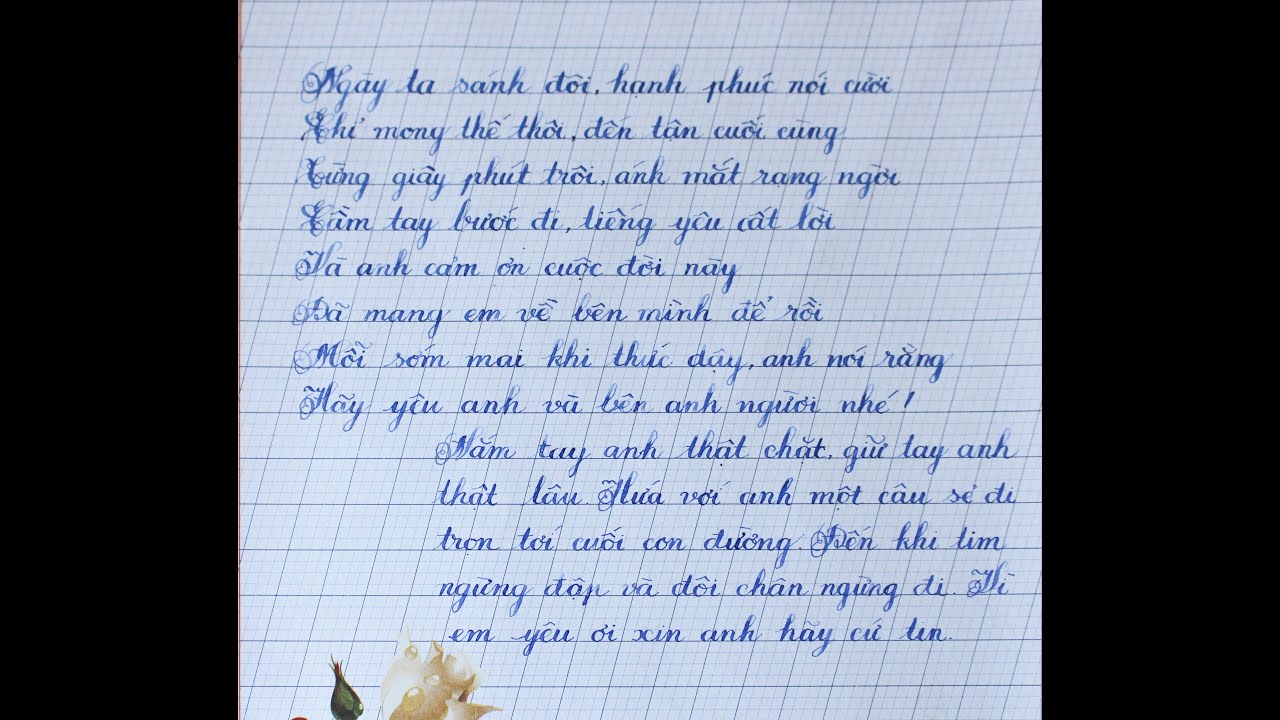 Ngày ta sánh đôi, hạnh phúc nói cười
Chỉ mong thế thôi, đến tận cuối cùng
Từng giây phút trôi, ánh mắt rạng ngời
Cầm tay bước đi, tiếng yêu cất lời
Và anh cảm ơn cuộc đời này
Đã mang em về bên mình để rồi
Mỗi sớm mai khi thức dậy, anh nói rằng
Hãy yêu anh và bên anh người nhé!
Nắm tay anh thật chặt, giữ tay anh
thật lâu. Hứa với anh một câu sẽ đi
trọn tới cuối con đường. Đến khi tim
ngừng đập và đôi chân ngừng đi. Vì
em yêu ơi xin anh hãy cứ tin.